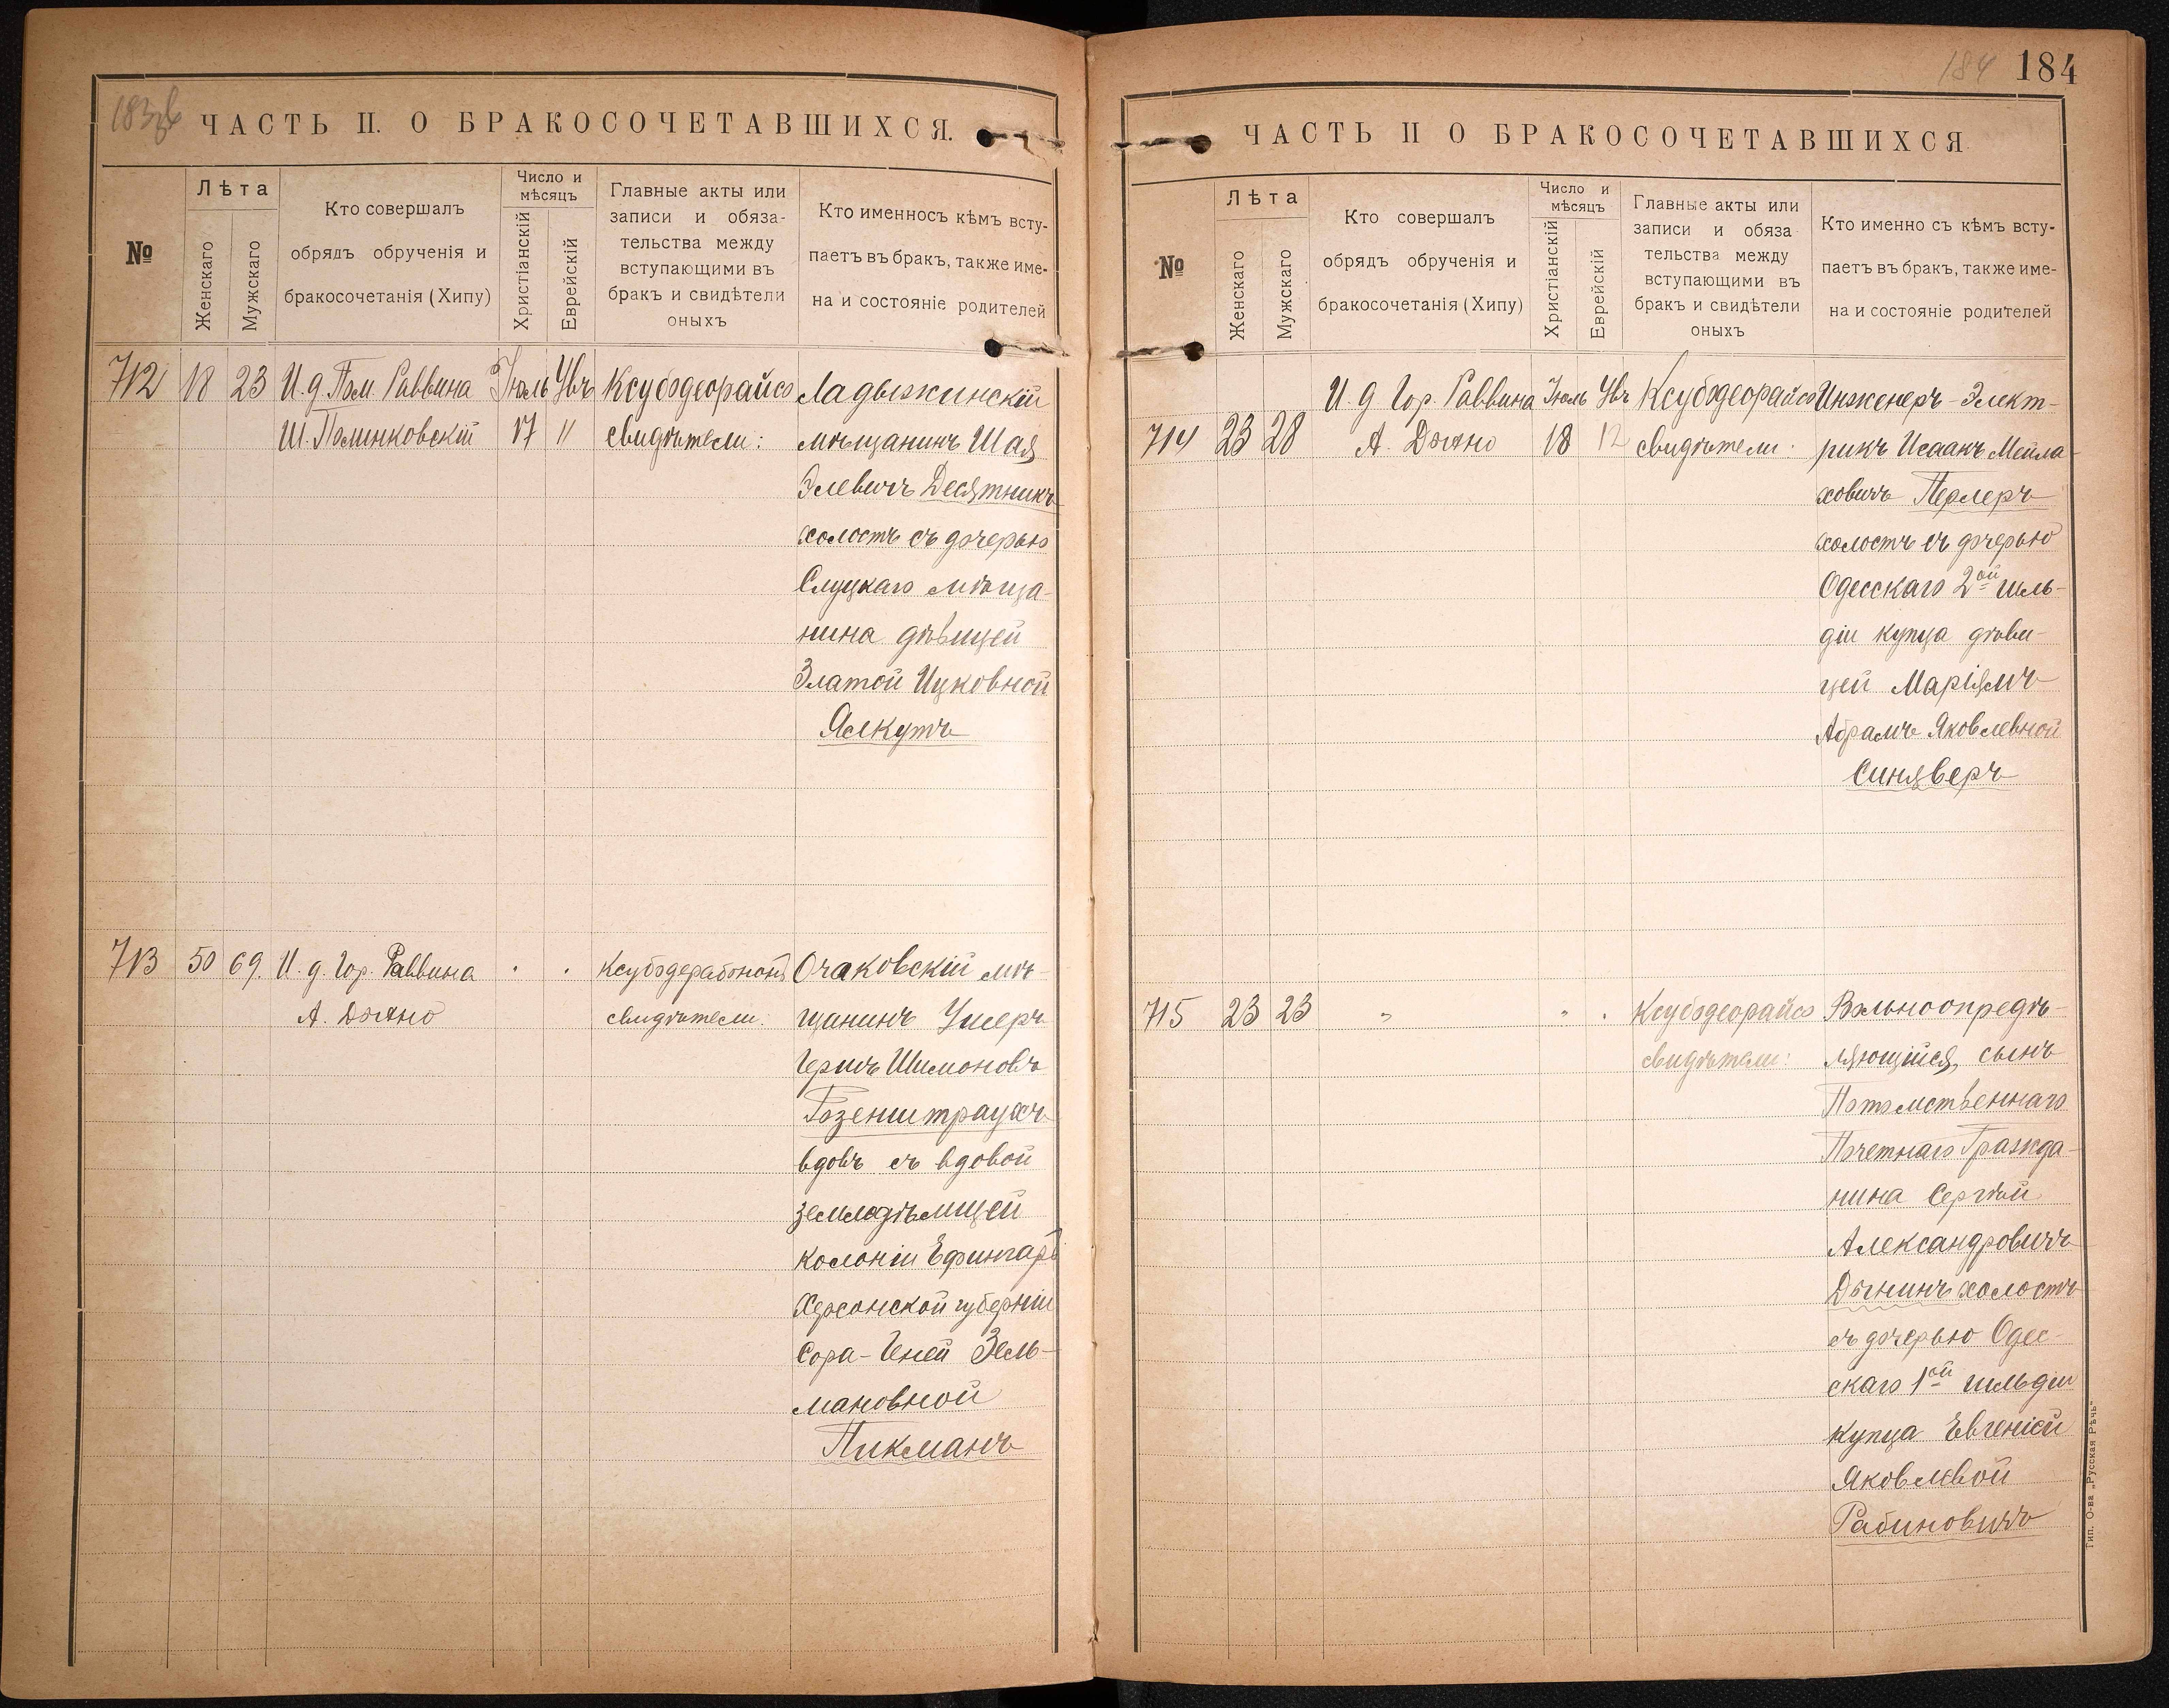 183об
ЧАСТЬ II. О БРАКОСОЧЕТАВШИХСЯ.
№
Лѣта
Женскаго
Мужскаго
Кто совершалъ
обрядъ обрученія и
бракосочетанія (Хипу)
Число и
мѣсяцъ
Христіанскій
Еврейскій
Главные акты или
записи и обяза-
тельства между
вступающими въ
бракъ и свидѣтели
оныхъ
Кто именносъ кѣмъ всту-
паетъ въ бракъ, также име-
на и состояніе родителей
712 18 23 И. д. Пом. Раввина Іюль Увъ Ксубодеорайсо Ладыжинскій
Ш. Полинковскій 17 11 свидѣтели: мѣщанинъ Шая
Элевичъ Десятникъ
холостъ съ дочерью
Слуцкаго мѣща-
нина дѣвицей
Златой Ицковной
Ялкутъ
713 50 69. И. д. Гор. Раввина Очаковскій мѣ-
А. Дыхно свидѣтели: щанинъ Ушеръ
Гершъ Шимоновъ
Розенштраухъ
вдовъ съ вдовой
земледѣлицей
колоніи Ефингаръ
Херсонской губерніи
Сора-Геней Зель-
мановной
Пикманъ
184 184
ЧАСТЬ II О БРАКОСОЧЕТАВШИХСЯ
№
Лѣта
Женскаго
Мужскаго
Кто совершалъ
обрядъ обрученія и
бракосочетанія (Хипу)
Число и
мѣсяцъ
Христіанскій
Еврейскій
Главные акты или
записи и обяза
тельства между
вступающими въ
бракъ и свидѣтели
оныхъ
Кто именно съ кѣмъ всту-
паетъ въ бракъ, также име-
на и состояніе родителей
И. д Гор. Раввина Іюль Увъ Ксубодеорайсо Инженеръ-Элект-
714 23 28 А. Дыхно 18 12 свидѣтели: рикъ Исаакъ Мейла-
ховичъ Перлеръ
холостъ съ дочерью
Одесскаго 2ой гиль-
діи купца дѣви-
цей Маріямъ
Абрамъ Яковлевной
Синяверъ
715 23 23 " " . Ксубодеорайсо Вольноопредѣ-
свидѣтели: ляющійся, сынъ
Потомственнаго
Почетнаго Гражда-
нина Сергѣй
Александровичъ
Дынинъ холостъ
съ дочерью Одес-
скаго 1ой гильдіи
купца Евгеніей
Яковлевой
Рабиновичъ
Тип. О-ва „Русская Рѣчь“